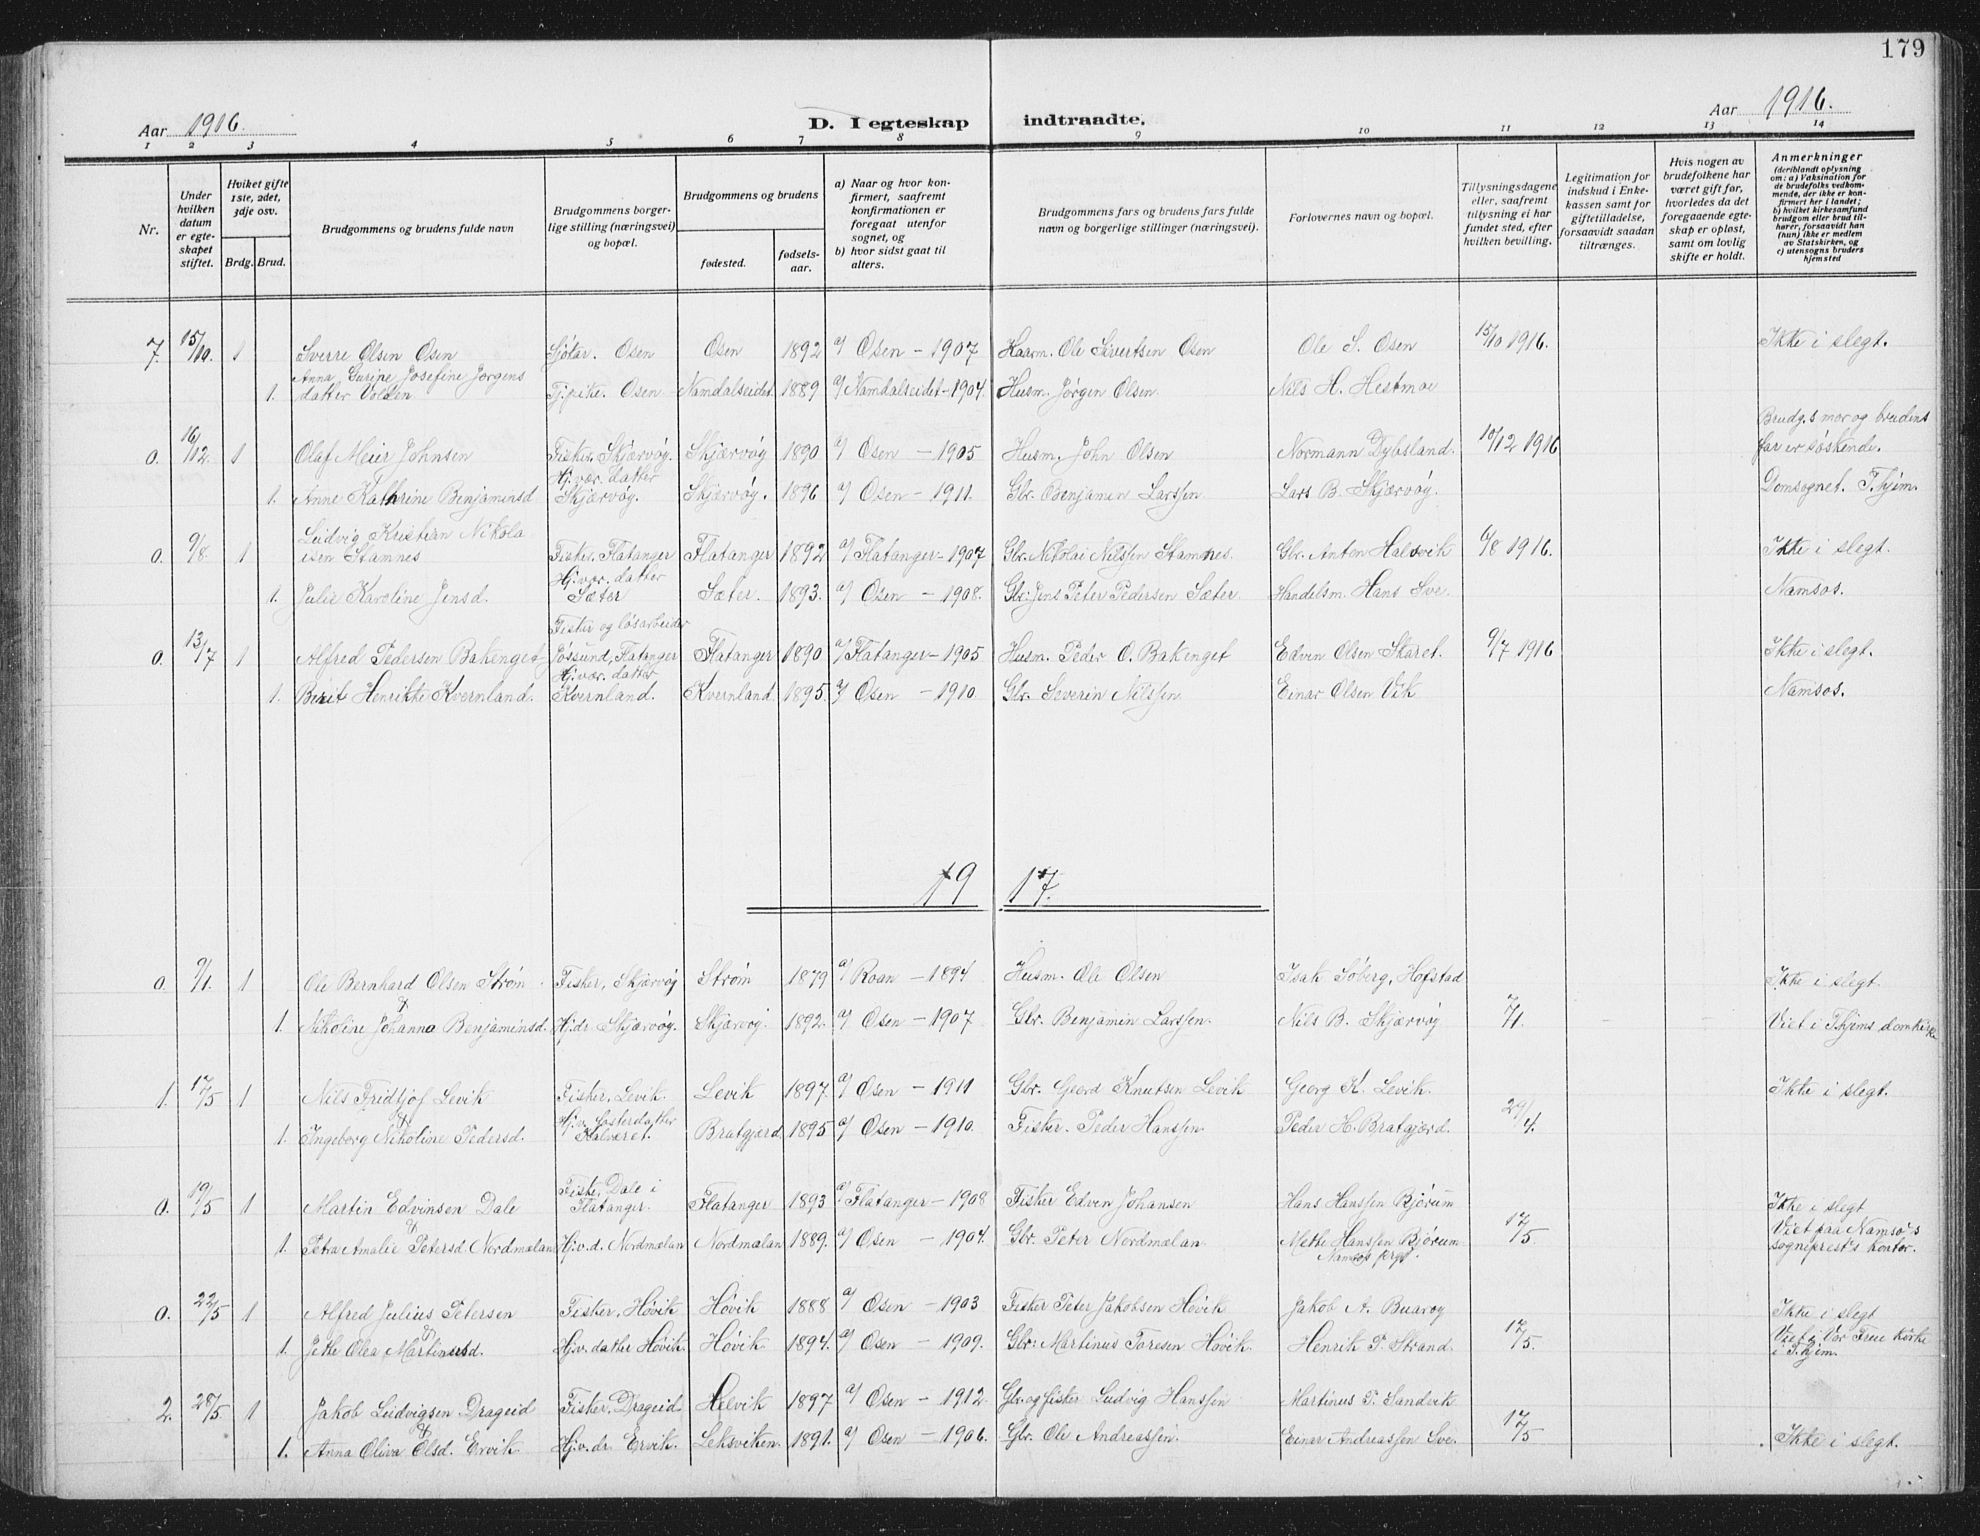 179
Aar 1916. D. I egteskap indtraadte. Aar 1916.
1 2 3 4 5 6 7 8 9 10 11 12 13 14
Nr.
Under hvilken datum er egteskapet stiftet.
Hviket gifte 1ste, 2det, 3dje osv.
Brdg. Brud.
Brudgommens og brudens fulde navn
Brudgommens borgerlige stilling (næringsvei) og bopæl.
Brudgommens og brudens
fødested.
fødselsaar.
a) Naar og hvor konfirmert, saafremt konfirmationen er foregaat utenfor sognet, og
b) hvor sidst gaat til alters.
Brudgommens fars og brudens fars fulde navn og borgerlige stillinger (næringsvei).
Forlovernes navn og bopæl.
Tillysningsdagene eller, saafremt tillysning ei har fundet sted, efter hvilken bevilling.
Legitimation for indskud i Enkekassen samt for giftetilladelse, forsaavidt saadan tiltrænges.
Hvis nogen av brudefolkene har været gift før, hvorledes da det foregaaende egteskap er opløst, samt om lovlig skifte er holdt.
Anmerkninger (deriblandt oplysning om: a) Vaksination for de brudefolks vedkommende, der ikke er konfirmert her i landet; b) hvilket kirkesamfund brudgom eller brud tilhører, forsaavidt han (hun) ikke er medlem av Statskirken, og c) utensogns bruders hjemsted
7. 15/10. 1 Sverre Olsen Osen Sjøtar. Osen Osen 1892 a/ Osen - 1907 Haarm. Ole Sivertsen Osen Ole S. Osen 15/10 1916. Ikke i slegt.
1. Anna Gurine Josefine Jørgensdatter Volden Tj.pike. Osen Namdalseidet 1889 a/ Namdalseidet - 1904. Husm. Jørgen Olsen Nils H. Hestmoe
0. 16/12. 1 Olaf Meier Johnsen Fisker, Skjærvøy. Skjærvøy 1890 a/ Osen - 1905 Husm. John Olsen Normann Dybsland. 10/12 1916 Brudg.s mor og brudens far er søskende.
1. Anne Kathrine Benjaminsd Hj.vær. datter Skjærvøy. Skjærvøy. 1896 a/ Osen - 1911. Gbr. Benjamin Larssen Lars B. Skjærvøy. Domsognet. T.hjem.
0. 9/8. 1 Ludvig Kristian Nikolaisen Stamnes Fisker, Flatanger Flatanger 1892 a/ Flatanger - 1907 Gbr. Nikolai Nilssen Stamnes. Gbr. Anton Halsvik 6/8 1916. Ikke i slegt.
1. Julie Karoline Jensd. Hj.vær. datter Sæter Sæter. 1893. a/ Osen - 1908. Gbr. Jens Peter Pedersen Sæter Handelsm. Hans Sve. Namsos.
0. 13/7 1 Alfred Pedersen Bakenget Fisker og løsarbeider Jøssund, Flatanger Flatanger 1890 a/ Flatanger - 1905 Husm. Peder O. Bakenget Edvin Olsen Skaret. 9/7 1916 Ikke i slegt.
1. Berit Henrikke Kvernland. Hj.vær. datter Kvernland. Kvernland 1895. a/ Osen - 1910 Gbr. Severin Nilssen Einar Olsen Vik Namsos.
19 17.
0. 9/1. 1 Ole Bernhard Olsen Strøm Fisker, Skjærvøy Strøm 1879 a/ Roan - 1894 Husm. Ole Olsen Isak Søberg, Hofstad Ikke i slegt.
&
1. Nikoline Johanna Benjaminsd. Hj.dr. Skjærvøy. Skjærvøy. 1892. a/ Osen - 1907 Gbr. Benjamin Larssen. Nils B. Skjærvøy 7/1. - - Viet i T.hjems domkirke
1. 17/5 1 Nils Fridtjof Levik Fisker, Levik Levik 1897. a/ Osen - 1911 Gbr. Georg Knutsen Levik Georg K. Levik. Ikke i slegt.
&
1. Ingeborg Nikoline Pedersd. Hj.v. fosterdatter Halværet. Bratgjærd 1895 a/ Osen - 1910. Fisker. Peder Hanssen. Peder H. Bratgjærd. 29/4.
0. 19/5 1 Martin Edvinsen Dale Fisker, Dale i Flatanger. Flatanger 1893 a/ Flatanger - 1908 Fisker Edvin Johansen Hans Hanssen Bjørum Ikke i slegt
&
1. Petra Amalie Petersd. Nordmælan Hj.v.d. Nordmælan Nordmælan 1889. a/ Osen - 1904. Gbr. Peter Nordmælan. Methe Hanssen Bjørum 17/5 Viet paa Namsos sogneprest's kontor.
0. 22/5 1 Alfred Julius Petersen Fisker, Høvik Høvik 1888 a/ Osen - 1903 Fisker Peter Jakobsen Høvik Jakob A. Buarøy Ikke i slegt
&
1. Jette Olea Martinusd. Hj.v. datter Høvik Høvik 1894. a/ Osen - 1909. Gbr. Martinus Toresen Høvik. Henrik P. Strand. 17/5. Viet i Vor Frue kirke i T.hjem.
2. 28/5. 1 Jakob Ludvigsen Drageid Fisker, Drageid Helvik 1897 a/ Osen - 1912. Gbr. og fisker Ludvig Hanssen Martinus P. Sandvik
&
1. Anna Oliva Olsd. Ervik. Hj.v. dr. Ervik. Leksviken. 1891. a/ Osen - 1906. Gbr. Ole Andreassen. Einar Andreassen Sve. 17/5 Ikke i slegt.